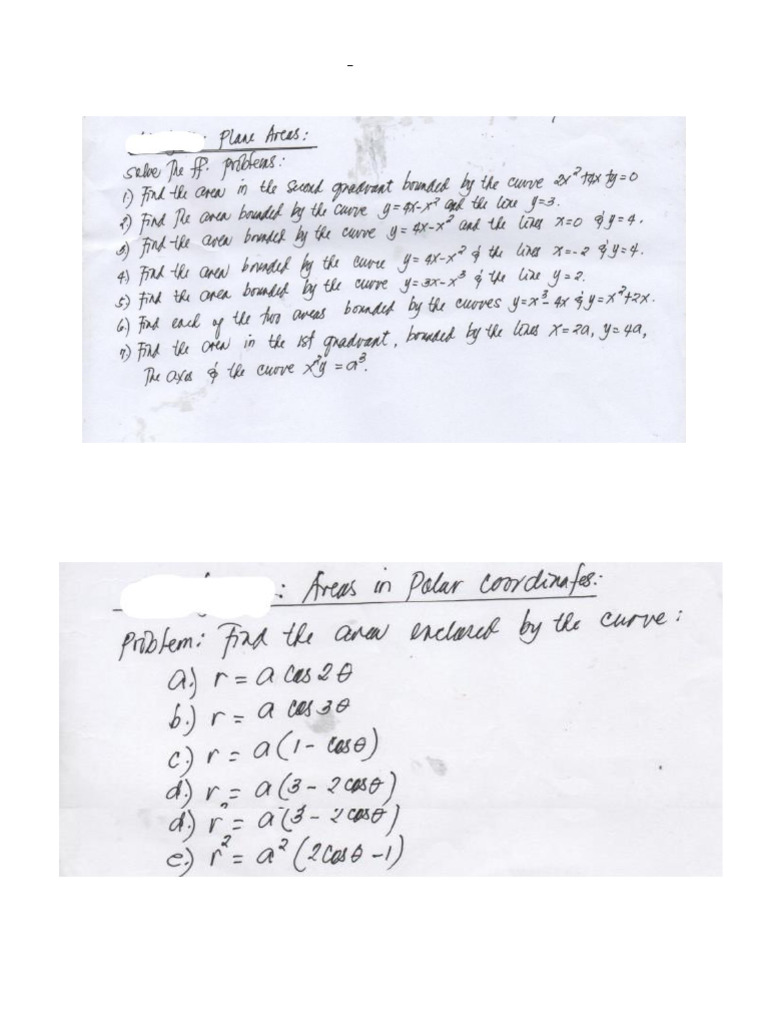 Plane Areas:
Solve The ff. problems:
1) Find the area in the second quadrant bounded by the curve 2x²+4x+y=0
2) Find The area bounded by the curve y=4x-x² and the line y=3.
3) Find the area bounded by the curve y = 4x-x² and the lines x=0 & y=4.
4) Find the area bounded by the curve y=4x-x² & the lines x=-2 & y=4.
5) Find the area bounded by the curve y=3x-x³ & the line y=2.
6) Find each of the two areas bounded by the curves y=x³-4x & y=x²+2x.
7) Find the area in the 1st quadrant, bounded by the lines x=2a, y=4a,
The axes & the curve x²y = a³.
: Areas in Polar Coordinates:
Problem: Find the area enclosed by the curve:
a.) r = a cos 2θ
b.) r = a cos 3θ
c.) r = a(1- cosθ)
d.) r = a(3 - 2cosθ)
d.) r = a(3 - 2cosθ)
e.) r² = a² (2cosθ -1)